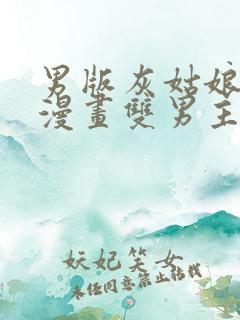 男版灰姑娘
漫畫雙男主
妖妃笑女
未任同意禁止转载